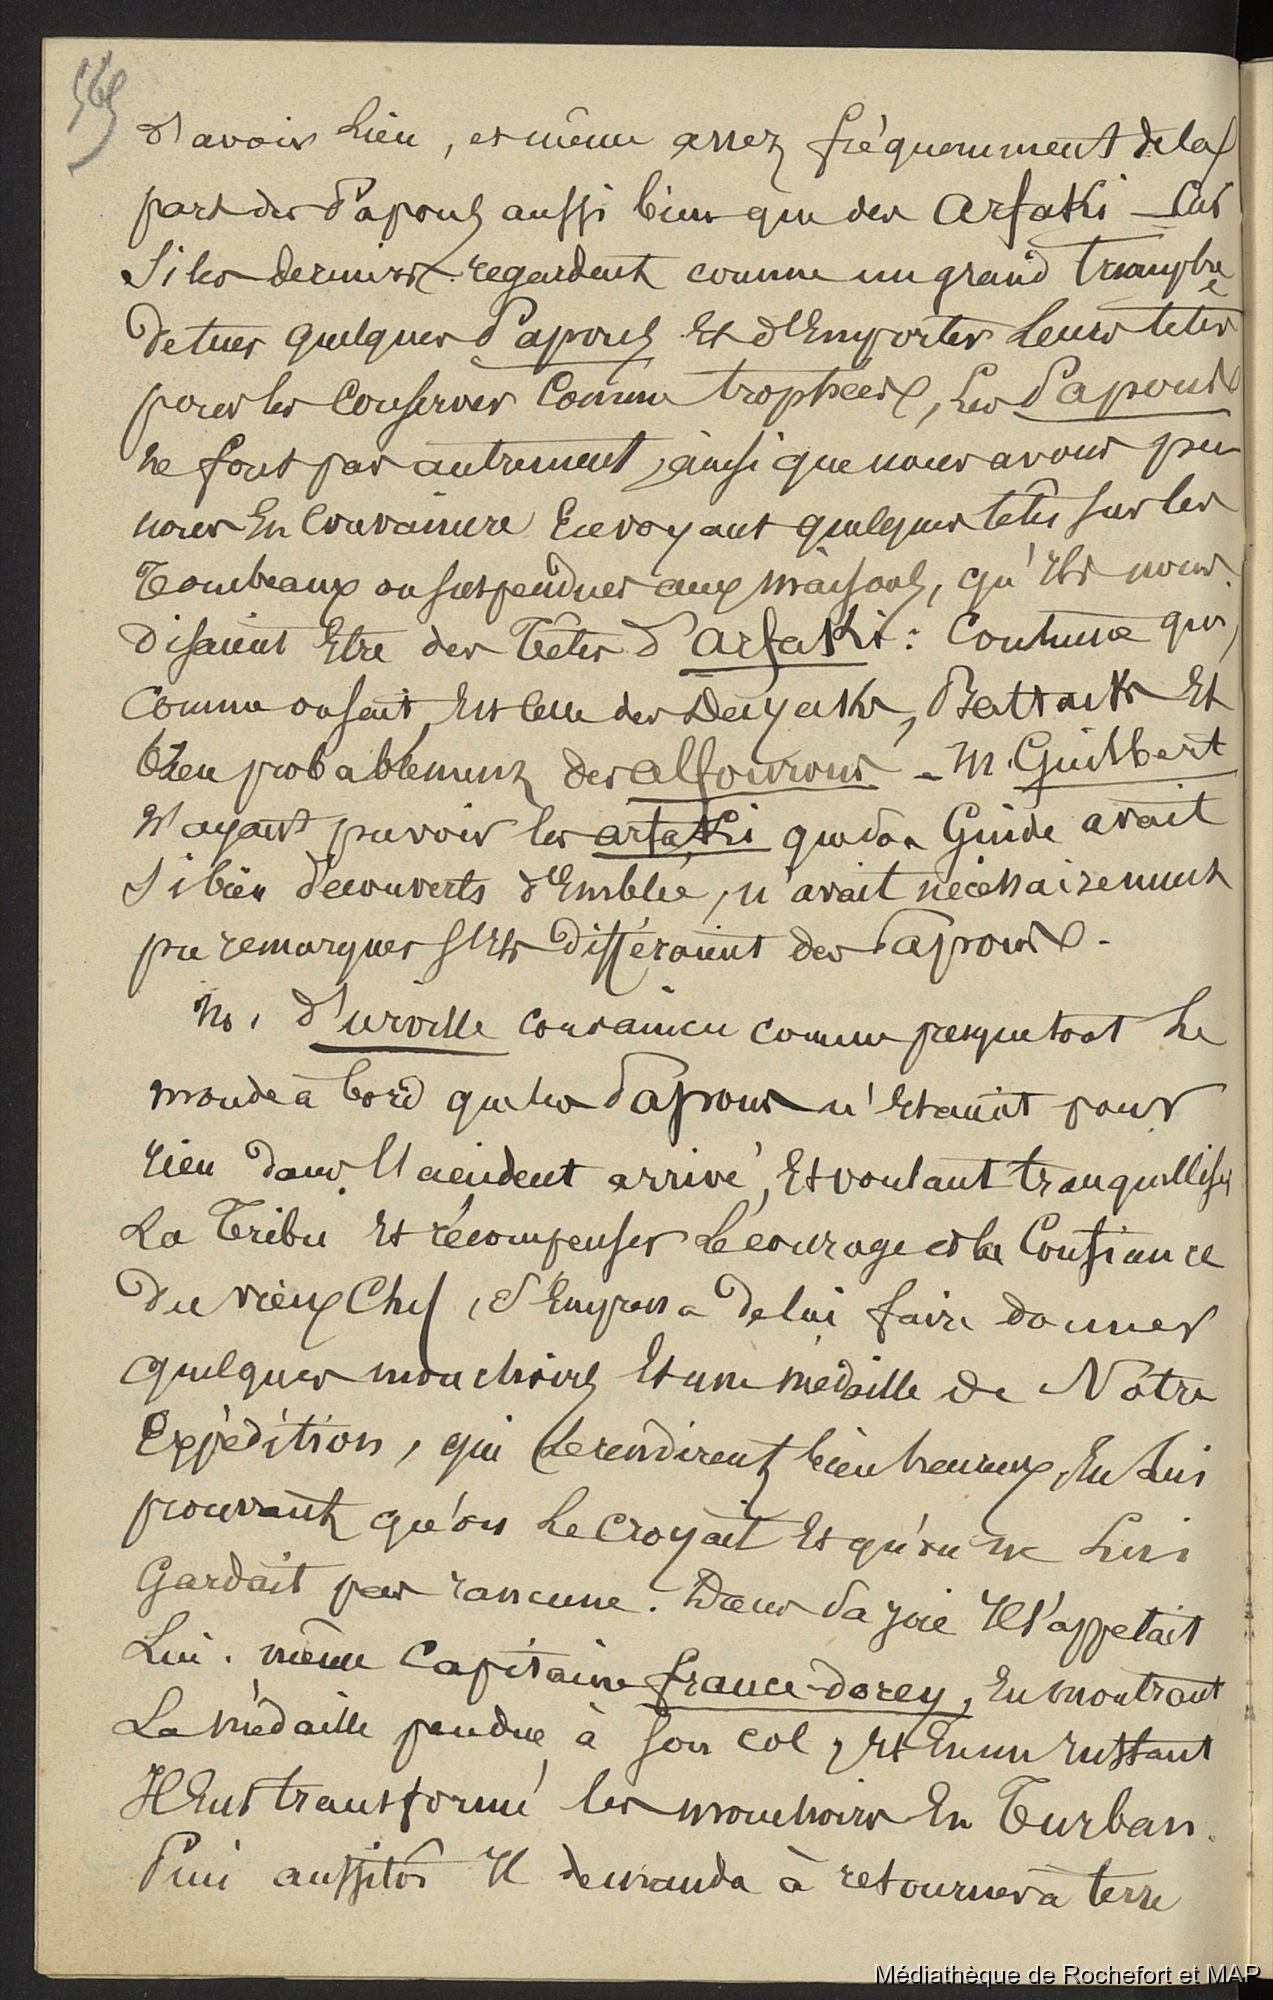 565
d'avoir lieu, et même assez fréquemment de la
part des Papous aussi bien que des Arfakis — Car
Si les derniers regardent comme un grand triomphe
de tuer quelques Papous Et d'Emporter Leurs têtes
pour les Conserver Comme trophées, Les Papous
ne font pas autrement, ainsi que nous avons pu
nous En Convaincre En voyant quelques têtes sur les
Tombeaux ou suspendues aux maisons, qu'Ils nous
disaient Etre des Têtes d'Arfakis : Coutume qui,
Comme on sait, Est Celle des Dayaks, Battaks Et
bien probablement des alfourous — M. Guilbert
n'ayant pu voir les arfakis que son Guide avait
si bien découverts d'Emblée, n'avait nécessairement
pu remarquer s'Ils différaient des Papous.
M. d'urville convaincu comme presque tout Le
monde à bord que les Papous n'Etaient pour
rien dans l'accident arrivé, Et voulant tranquilliser
La Tribu Et récompenser Le courage et la Confiance
du vieux Chef, s'Empressa de lui faire donner
quelques mouchoirs Et une médaille de Notre
Expédition, qui Le rendirent bien heureux, En Lui
prouvant qu'on Le Croyait Et qu'on ne Lui
Gardait pas rancune. Dans sa joie Il s'appelait
Lui-même Capitaine france-dorey, En montrant
La médaille pendue à son col, Et En un Instant
Il Eut transformé les mouchoirs En Turban.
Puis aussitôt Il demanda à retourner à terre
Médiathèque de Rochefort et MAP